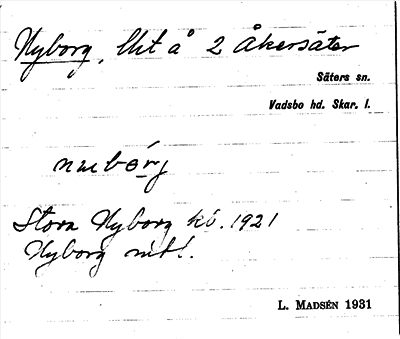 Nyborg, lht å 2 Åkersäter
Säters sn.
Vadsbo hd. Skar. l.
Stora Nyborg kb. 1921
Nyborg mtl.
L. MADSÉN 1931